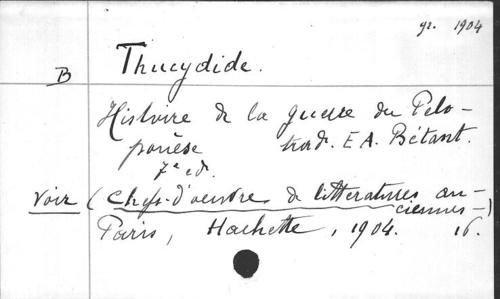 gr. 1904
B Thucydide.
Histoire de la guerre du Pélo-
ponèse trad. E A. Bétant.
7e éd.
Voir (Chefs-d'oeuvres de littératures an-
ciennes-)
Paris, Hachette, 1904. 16.